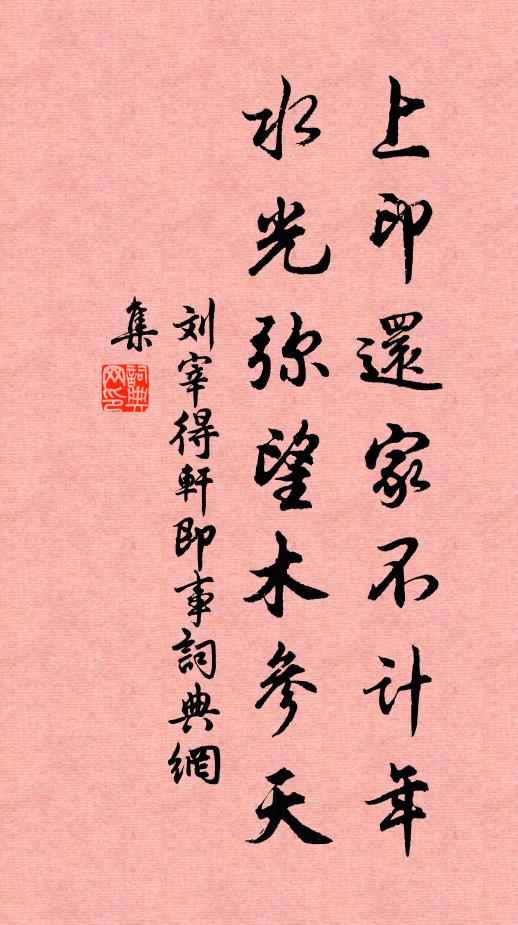 上印還家不計年
水光弥望木參天
刘宰得軒即事詞典網
集
詞典
网印